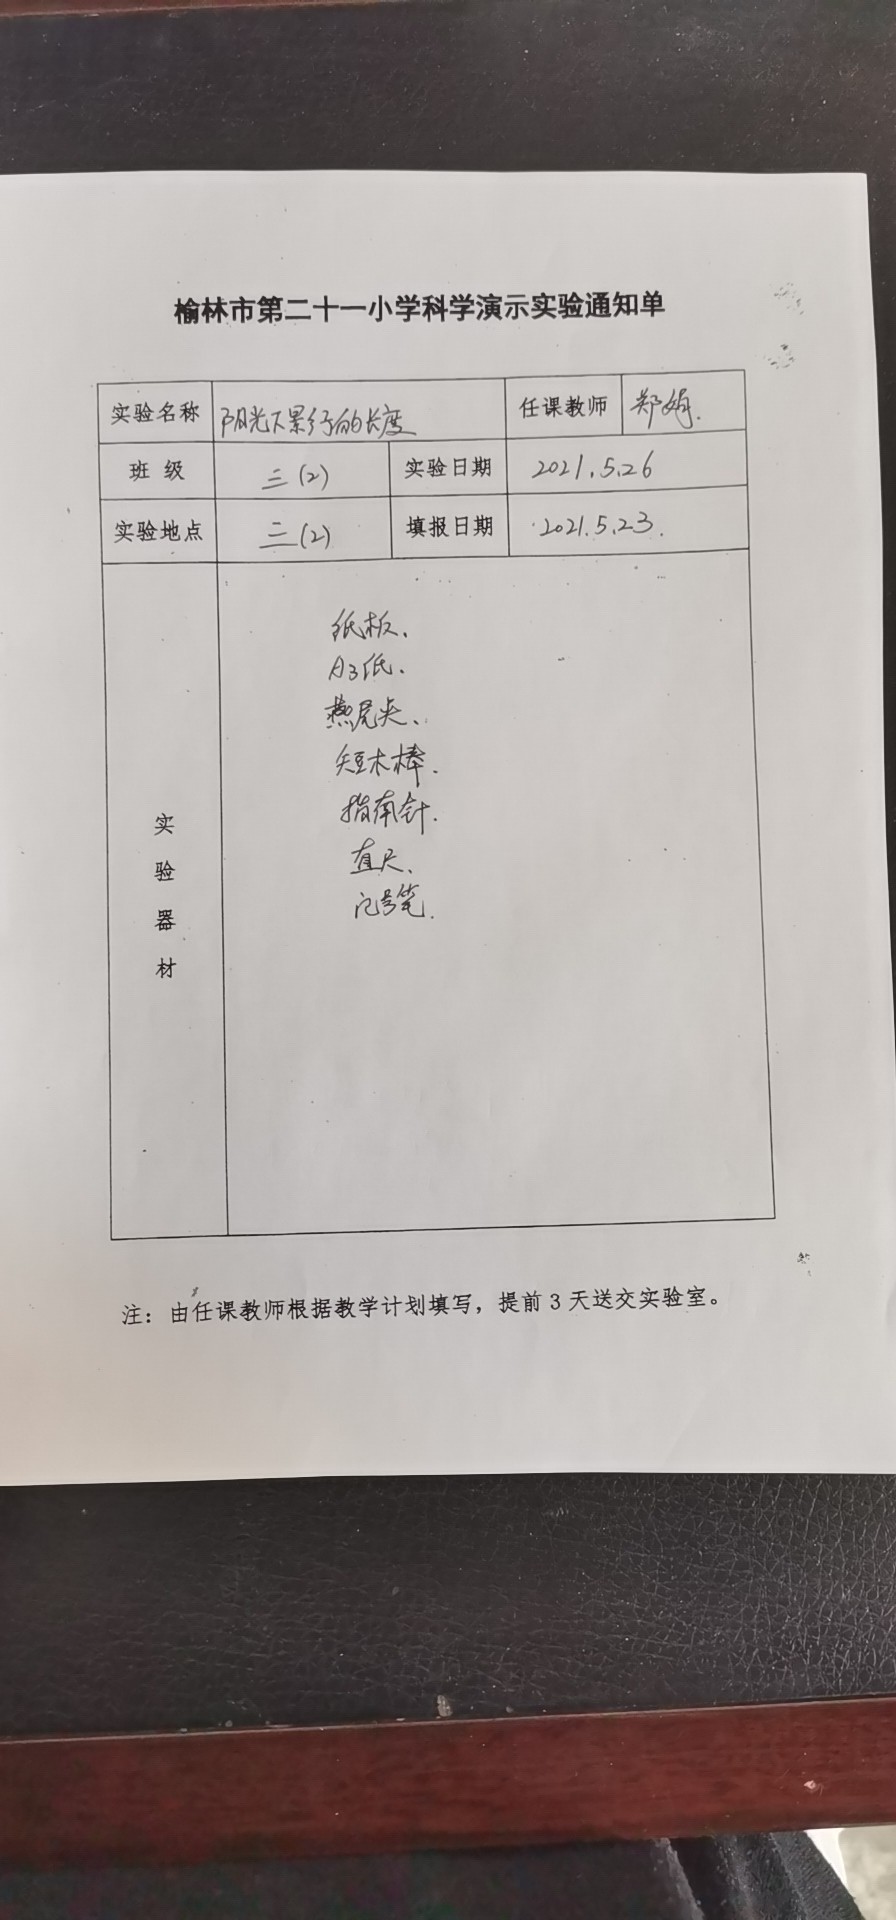 榆林市第二十一小学科学演示实验通知单
实验名称 阳光下影子的长度 任课教师 郑娟.
班 级 三(2) 实验日期 2021.5.26
实验地点 三(2) 填报日期 2021.5.23.
实验器材
纸板、
A3纸.
燕尾夹、
短木棒.
指南针.
直尺、
记号笔.
注：由任课教师根据教学计划填写，提前 3 天送交实验室。